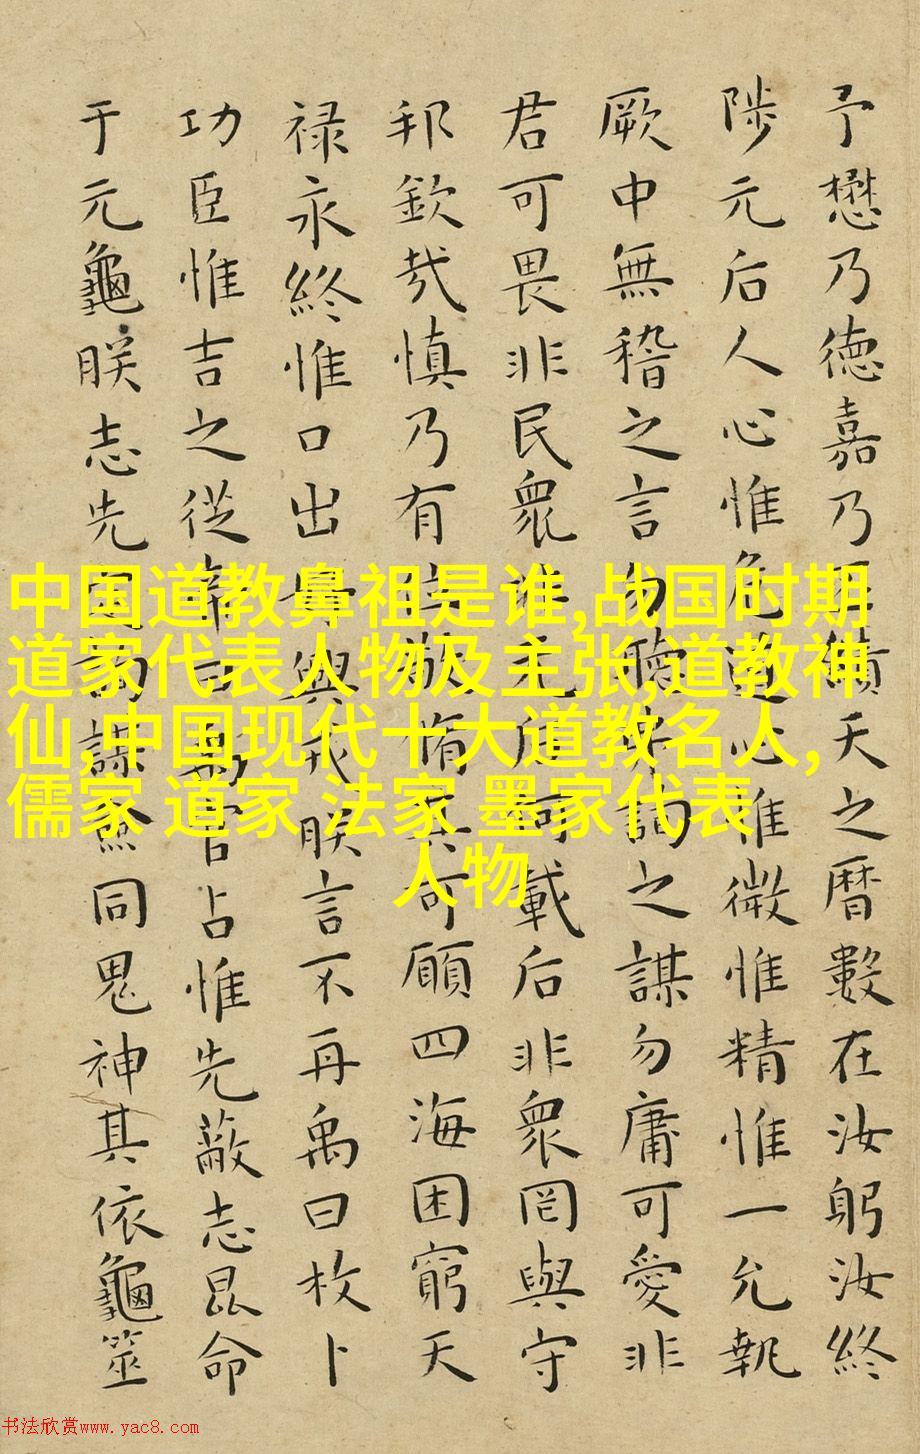 予懋乃德嘉乃丕績天之曆數在汝躬汝終
陟元后人心惟危道心惟微惟精惟一允執
厥中無稽之言勿聽弗詢之謀勿庸可愛非
君可畏非民衆非元后何載后非衆罔與守
邦欽哉慎乃有位敬脩其可願四海困窮天
禄永終惟口出好興戎朕言不再禹曰枚卜
功臣惟吉之從帝曰禹官占惟先蔽志昆命
于元龜朕志先定詢謀僉同鬼神其依龜筮
中国道教鼻祖是谁,战国时期
道家代表人物及主张,道教神
仙,中国现代十大道教名人,
儒家 道家 法家 墨家代表
人物
书法欣赏www.yac8.com